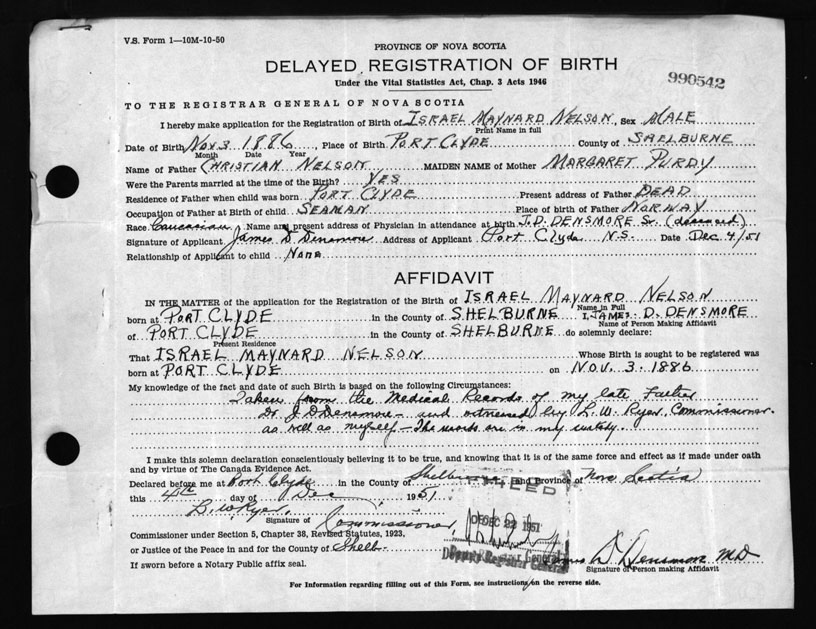 V.S. Form 1—10M-10-50
PROVINCE OF NOVA SCOTIA
DELAYED REGISTRATION OF BIRTH
990542
Under the Vital Statistics Act, Chap. 3 Acts 1946
TO THE REGISTRAR GENERAL OF NOVA SCOTIA
I hereby make application for the Registration of Birth of ISRAEL MAYNARD NELSON, Sex MALE
Print Name in full
Date of Birth Nov 3 1886, Place of Birth PORT CLYDE County of SHELBURNE
Month Date Year
Name of Father CHRISTIAN NELSON MAIDEN NAME of Mother MARGARET PURDY
Were the Parents married at the time of the Birth? YES
Residence of Father when child was born PORT CLYDE Present address of Father DEAD
Occupation of Father at Birth of child SEAMAN Place of birth of Father NORWAY
Race Caucasian Name and present address of Physician in attendance at birth J.D. DENSMORE Sr. (deceased)
Signature of Applicant James D Densmore Address of Applicant Port Clyde N.S. Date Dec 4/51
Relationship of Applicant to child None
AFFIDAVIT
IN THE MATTER of the application for the Registration of the Birth of ISRAEL MAYNARD NELSON
Name in Full
born at PORT CLYDE in the County of SHELBURNE I, JAMES D. DENSMORE
Name of Person Making Affidavit
of PORT CLYDE in the County of SHELBURNE do solemnly declare:
Present Residence
That ISRAEL MAYNARD NELSON Whose Birth is sought to be registered was
born at PORT CLYDE on NOV. 3. 1886
My knowledge of the fact and date of such Birth is based on the following Circumstances:
Taken from the Medical Records of my late Father
Dr. J D Densmore — and witnessed by L. W. Ryer, Commissioner.
as well as myself — The words are in my custody.
I make this solemn declaration conscientiously believing it to be true, and knowing that it is of the same force and effect as if made under oath
and by virtue of The Canada Evidence Act.
Declared before me at Port Clyde in the County of Shelburne and Province of Nova Scotia
this 4th day of Dec 1951
FILED
L. W. Ryer.
DEC 22 1951
Signature of Commissioner,
Commissioner under Section 5, Chapter 38, Revised Statutes, 1923,
or Justice of the Peace in and for the County of Shelb.
Deputy Registrar General
James D Densmore MD
Signature of Person making Affidavit
If sworn before a Notary Public affix seal.
For Information regarding filling out of this Form, see instructions on the reverse side.